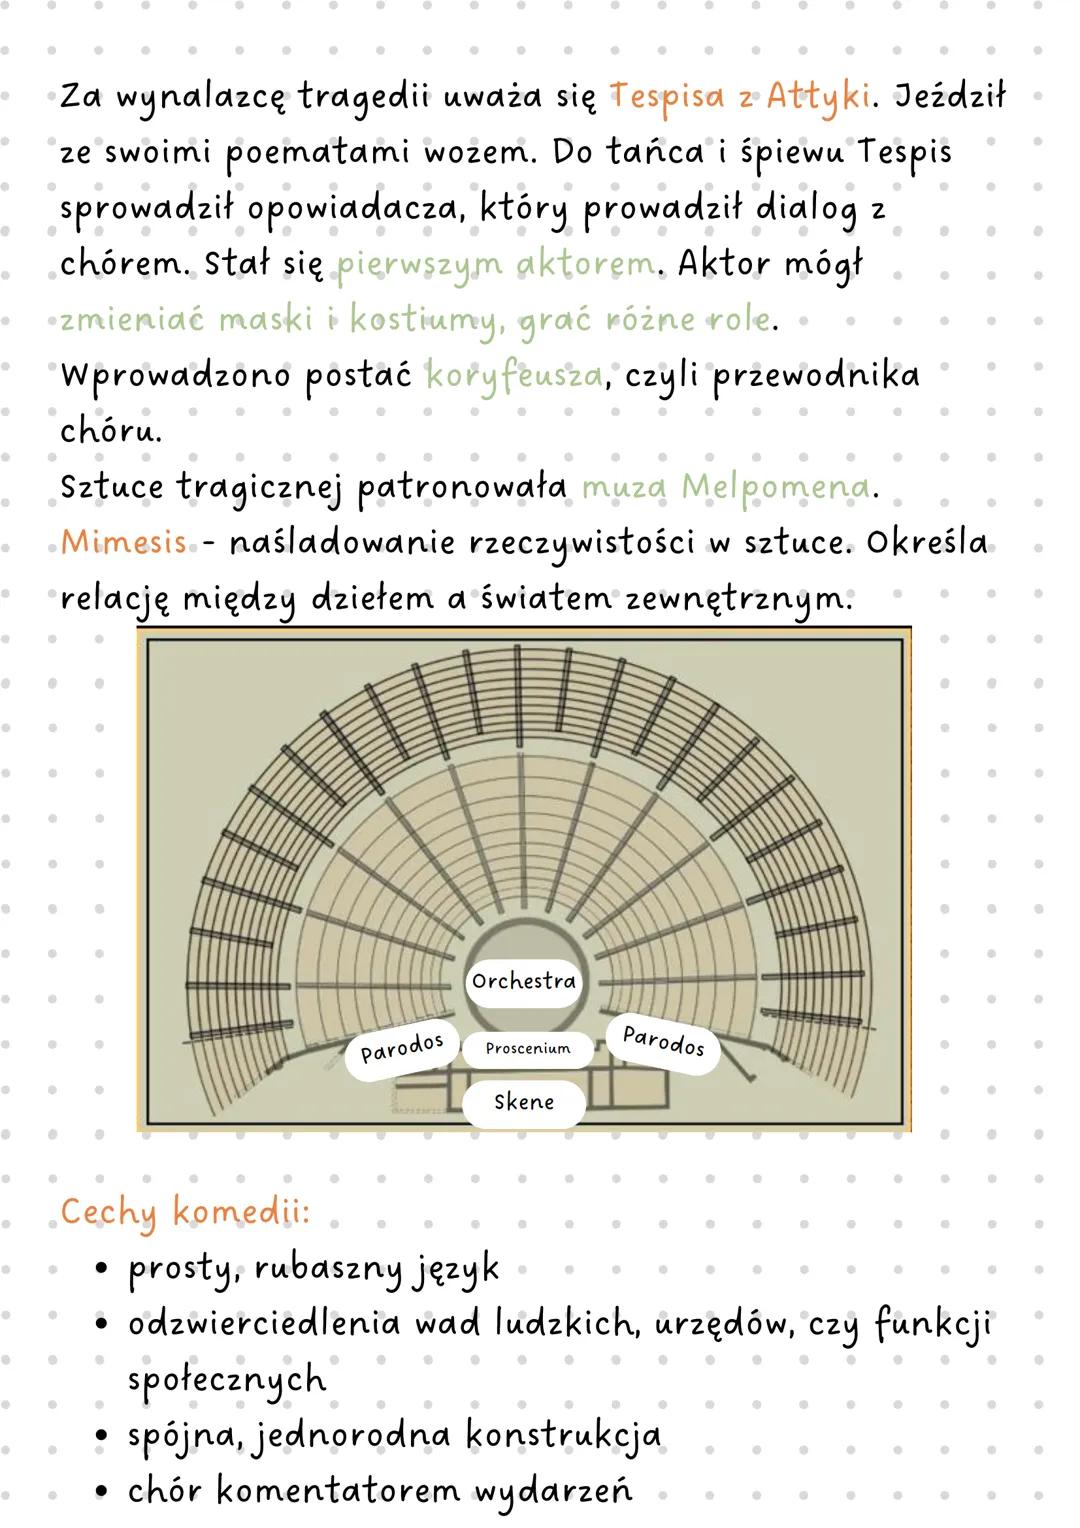 Za wynalazcę tragedii uważa się Tespisa z Attyki. Jeździł
ze swoimi poematami wozem. Do tańca i śpiewu Tespis
sprowadził opowiadacza, który prowadził dialog z
chórem. Stał się pierwszym aktorem. Aktor mógł
zmieniać maski i kostiumy, grać różne role.
Wprowadzono postać koryfeusza, czyli przewodnika
chóru.
Sztuce tragicznej patronowała muza Melpomena.
Mimesis - naśladowanie rzeczywistości w sztuce. Określa
relację między dziełem a światem zewnętrznym.
Orchestra
Parodos
Proscenium
Parodos
Skene
Cechy komedii:
• prosty, rubaszny język
• odzwierciedlenia wad ludzkich, urzędów, czy funkcji
społecznych
• spójna, jednorodna konstrukcja
• chór komentatorem wydarzeń